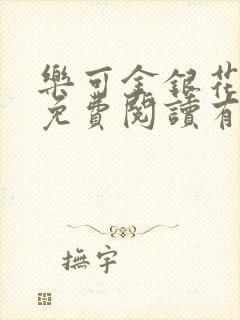 樂可金銀花
免費閱讀有
撫宇